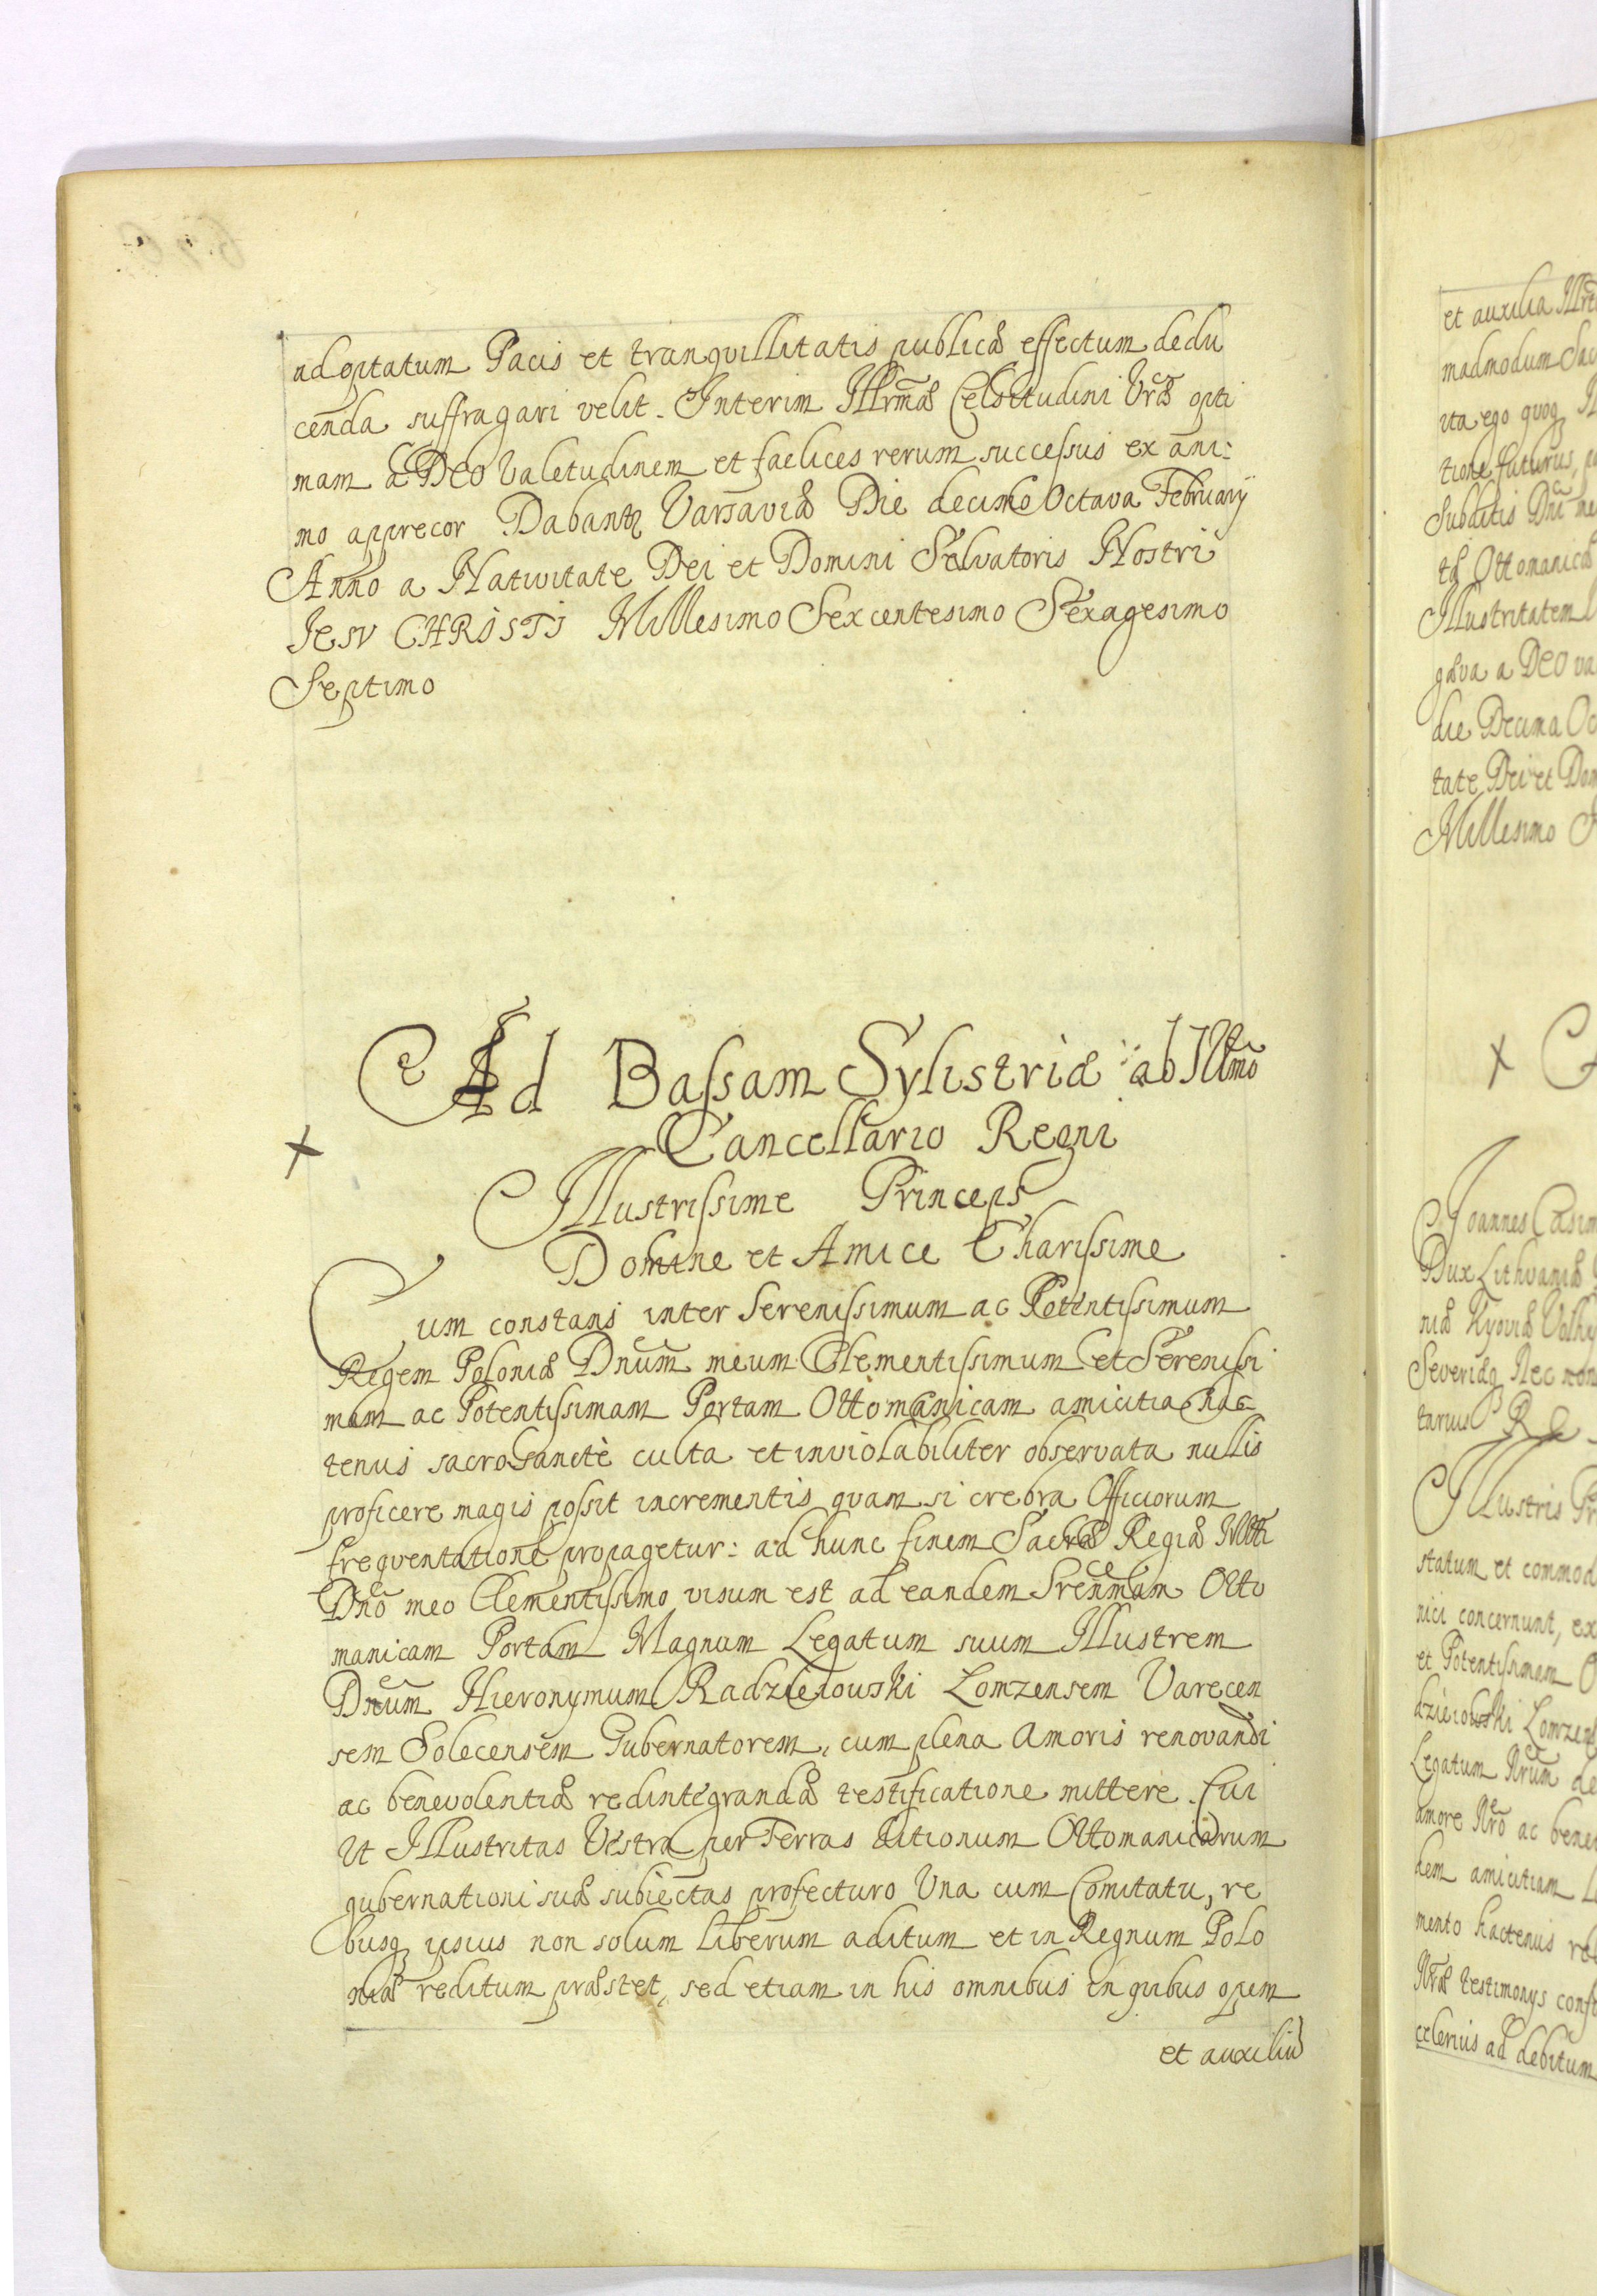 ad optatum Pacis et tranqvillitatis publicæ effectum dedu
cenda suffragari velit. Interim Illrmæ Celsitudini Vræ opti
mam a DEO Valetudinem et faelices rerum successus ex ani:
mo apprecor Dabantr Varsaviæ Die decimo Octava February
Anno a Nativitate Dei et Domini Salvatoris Nostri
JESV CHRISTI Millesimo Sexcentesimo Sexagesimo
Septimo
Ad Bassam Sylistriæ ab Illmo
Cancellario Regni
Illustrissime Princeps
Domine et Amice Charissime
Cum constans inter Serenissimum ac Potentissimum
Regem Poloniæ Dnum meum Clementissimum et Serenissi
mam ac Potentissimam Portam Ottomanicam amicitia hac
tenus sacrosanctè culta et inviolabiliter observata nullis
proficere magis possit incrementis qvam si crebra Officiorum
freqventatione propagetur: ad hunc finem Sacræ Regiæ Mtti
Dno meo Clementissimo visum est ad eandem Srenmam Otto
manicam Portam Magnum Legatum suum Illustrem
Dnum Hieronymum Radzieiowski Lomzensem Varecen
sem Solecensem Gubernatorem, cum plena Amoris renovandi
ac benevolentiæ redintegrandæ testificatione mittere. Cui
Ut Illustritas Vestra per Terras ditionum Ottomanicarum
gubernationi suæ subiectas profecturo Una cum Comitatu, re
busq ipsius non solum liberum aditum et in Regnum Polo
niæ reditum præstet, sed etiam in his omnibus in quibus opem
et auxiliu
et auxilia
madmodum
ita ego quoq
tione futurus,
Subditis Dni
tæ Ottomanicæ
Illustritatem
a DEO va
die Decima Oc
tate Dei et Dom
Millesimo
Joannes Casim
Dux Lithvaniæ
niæ Kyoviæ Volhy
Severiæq Nec non
Illustris Pr
statum et commod
nici concernunt, ex
et Potentissimam O
dzieiowski Lomzens
Legatum Nrum de
amore Nro ac bene
dem amicitiam
mento hactenus re
Nræ testimonys conf
celerius ad debitum